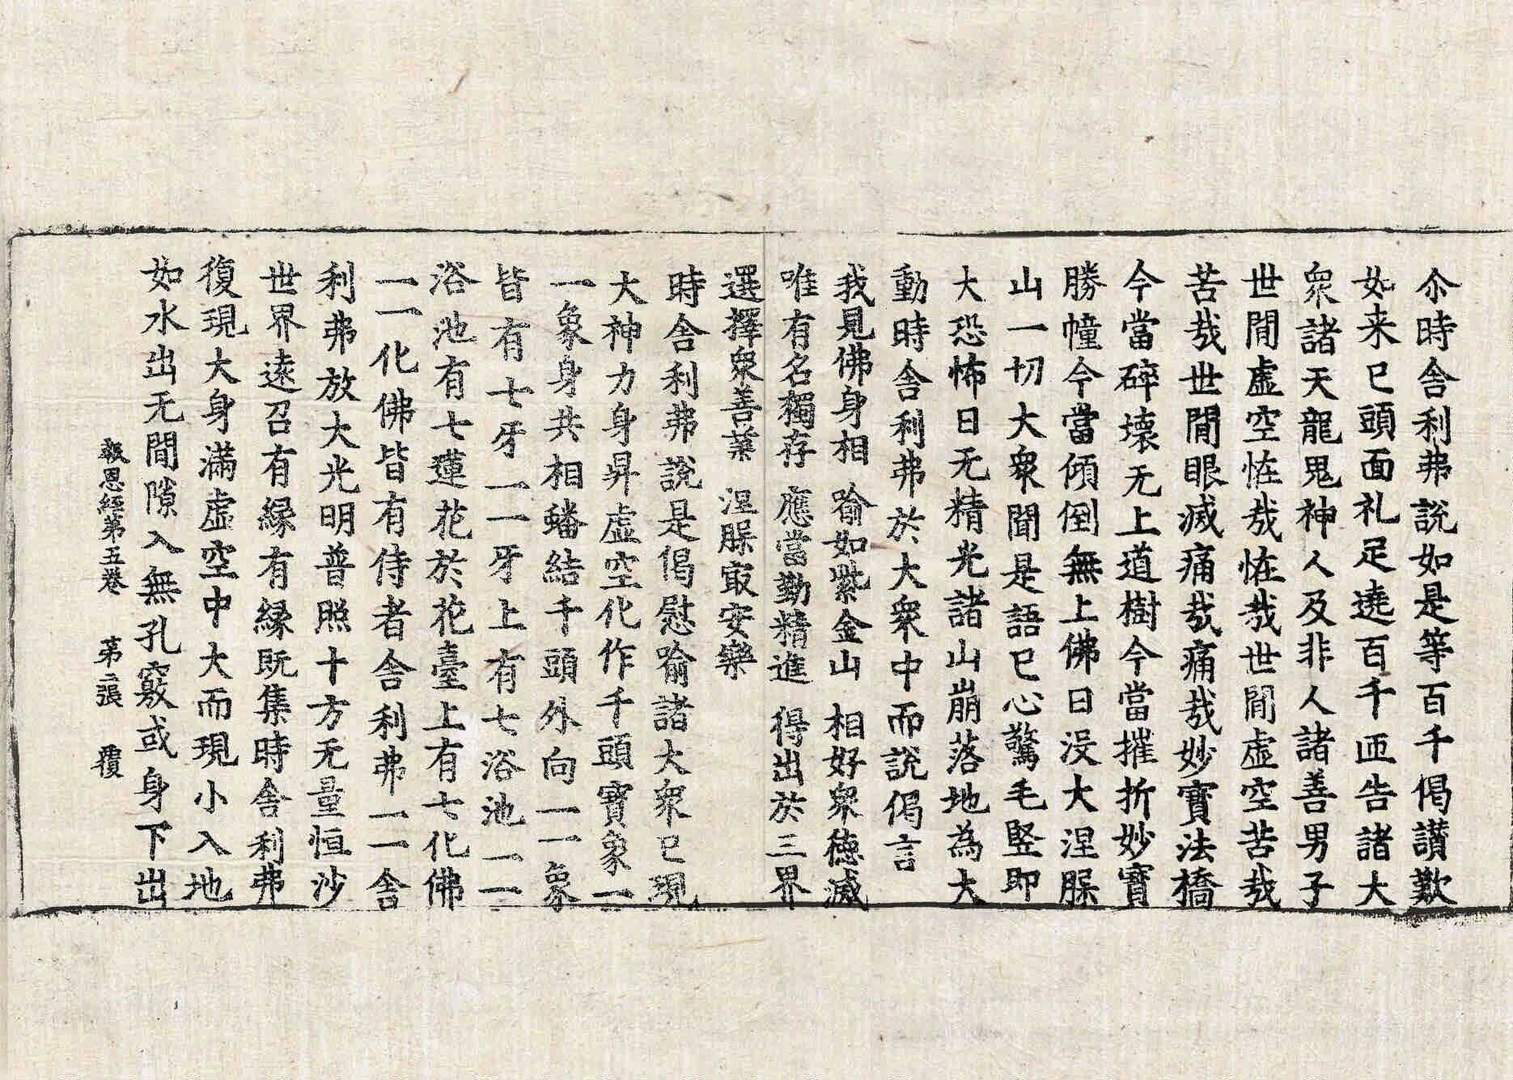 尒時舎利弗說如是等百千偈讃歎
如来已頭面礼足遶百千迊告諸大
衆諸天龍鬼神人及非人諸善男子
世間虚空恠㢤恠㢤世間虚空苦㢤
苦㢤世間眼滅痛㢤痛㢤妙寳法橋
今當碎壊无上道樹今當摧折妙寳
勝幢今當傾倒無上佛日没大涅槃
山一切大衆聞是語已心驚毛竪即
大恐怖日无精光諸山崩落地為大
動時舎利弗於大衆中而說偈言
我見佛身相 喻如紫金山 相好衆徳滅
唯有名獨存 應當勤精進 得出於三界
選擇衆善業 涅槃㝡安樂
時舎利弗說是偈慰喻諸大衆已現
大神力身昇虚空化作千頭寳象一
一象身共相蟠結千頭外向一一象
皆有七牙一一牙上有七浴池一一
浴池有七蓮花於花臺上有七化佛
一一化佛皆有侍者舎利弗一一舎
利弗放大光明普照十方无量恒沙
世界遠召有縁有縁既集時舎利弗
復現大身滿虚空中大而現小入地
如水出无間隙入無孔竅或身下出
報恩經第五卷 第二張 覆